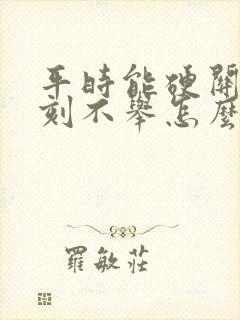 平時能硬關
刻不舉怎麼
羅敏莊